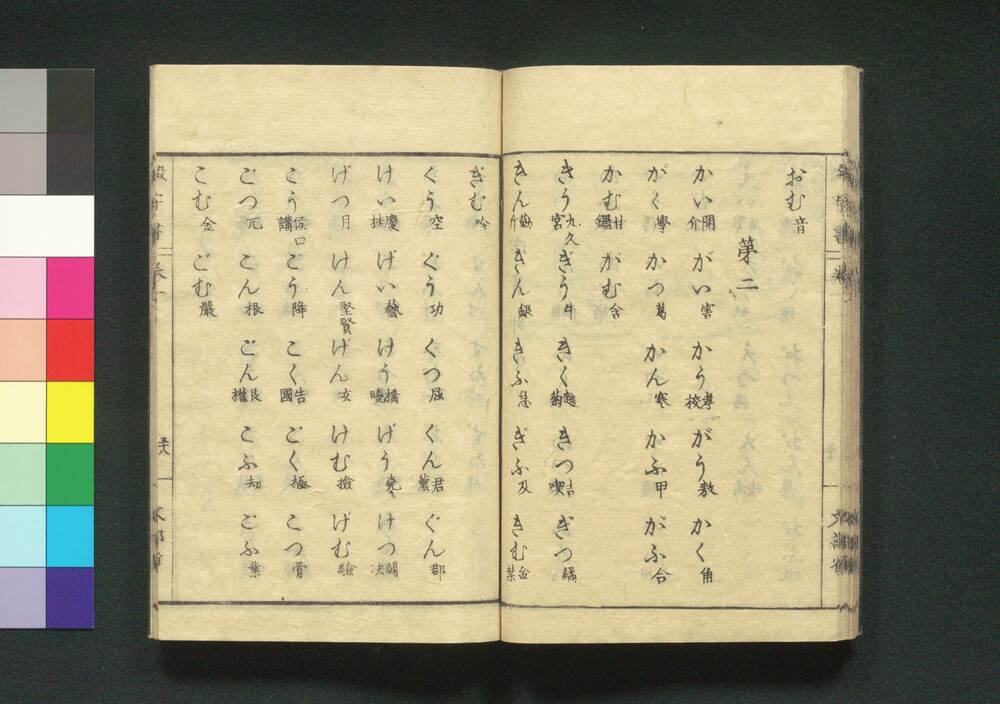 おむ音
第二
かい開介 がい害 かう孝校 がう敖 かく角
がく學 かつ葛 かん寒 かふ甲 がふ合
かむ甘鑑 がむ含
きう九久宮 ぎう牛 きく菊 きつ吉喫 ぎつ
きん斤 ぎん銀 きふ急 ぎふ及 きむ金禁
ぎむ吟
くう空 ぐう功 くつ屈 くん君薫 ぐん郡
けい慶桂 げい藝 けう橋曉 げう堯 けつ決
げつ月 けん堅賢 げん玄 けむ檢 げむ驗
こう侯口講 ごう降 こく告國 ごく極 こつ骨
ごつ兀 こん根 ごん艮權 こふ劫 ごふ業
こむ金 ごむ嚴
文部省